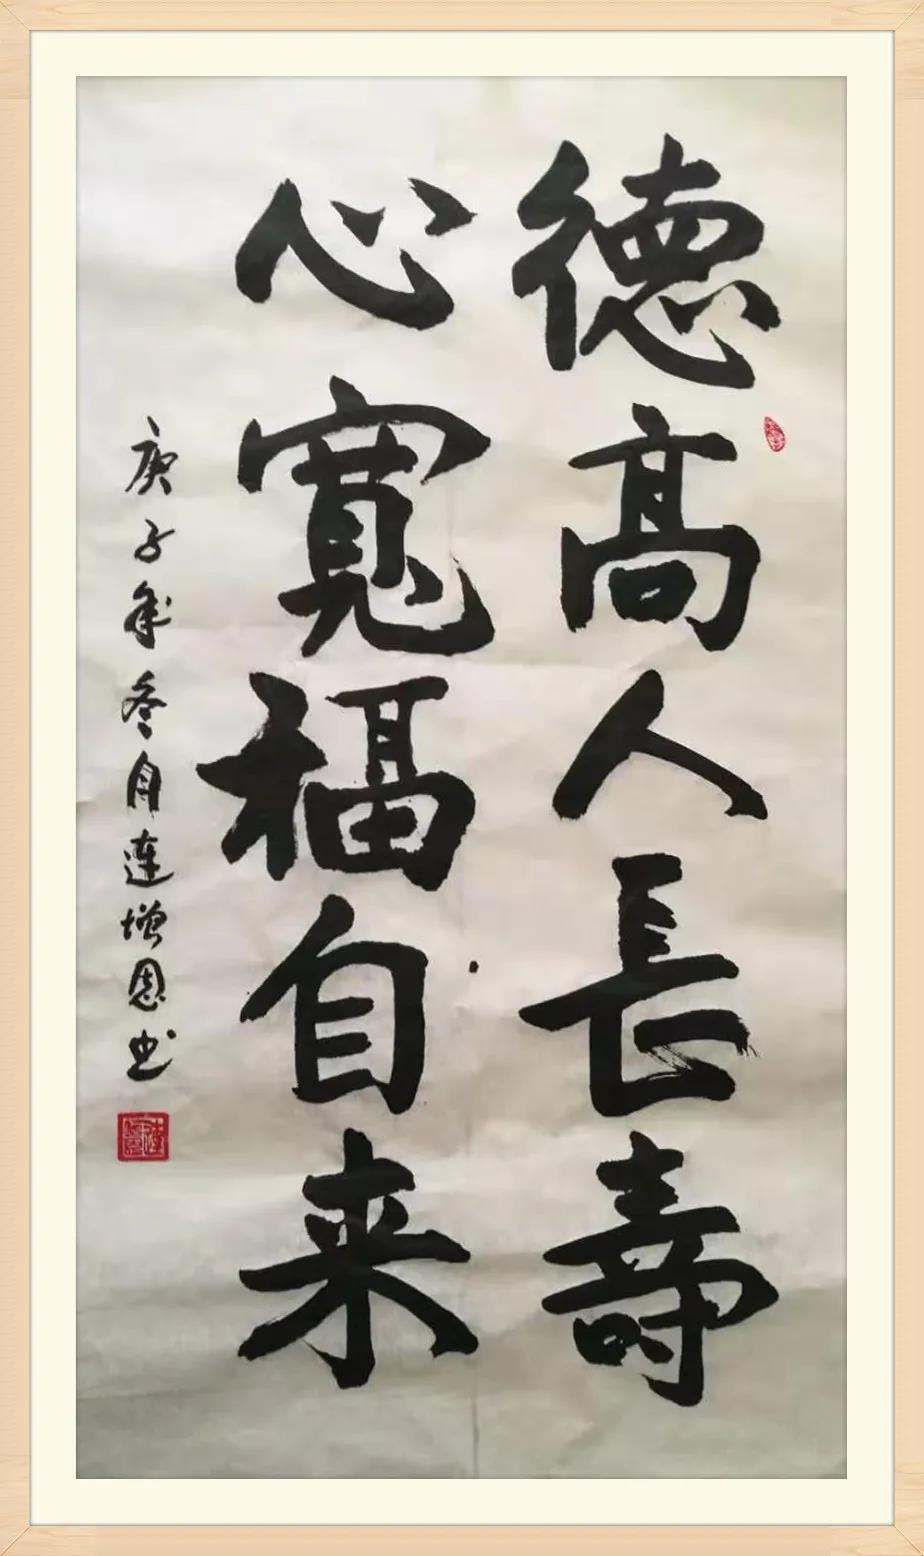 德高人長壽
心寬福自来
庚子年冬月連增恩书